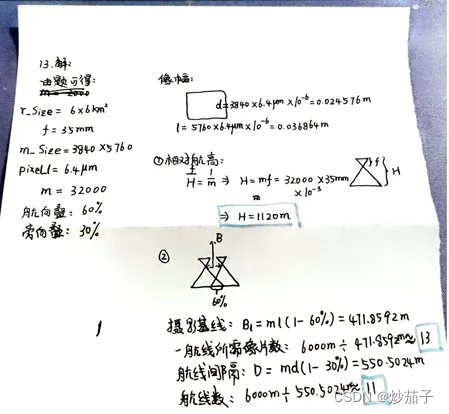 13.解:
由题可得:
m = 2000
r_Size = 6×6km²
f = 35mm
m_Size = 3840×5760
pixel_l = 6.4μm
m = 32000
航向叠: 60%
旁向叠: 30%
像幅:
d=3840×6.4μm×10⁻⁶=0.024576m
l = 5760×6.4μm×10⁻⁶=0.036864m
①相对航高:
f/H = 1/m ⇒ H = mf = 32000×35mm ×10⁻³
m
⇒ H=1120m
f
H
②
B
60%
摄影基线: B₁ = ml(1-60%) = 471.8592m
一航线所需像片数: 6000m÷471.8592m≈ 13
航线间隔: D = md(1-30%) = 550.5024m
航线数: 6000m÷550.5024m≈ 11
CSDN @炒茄子